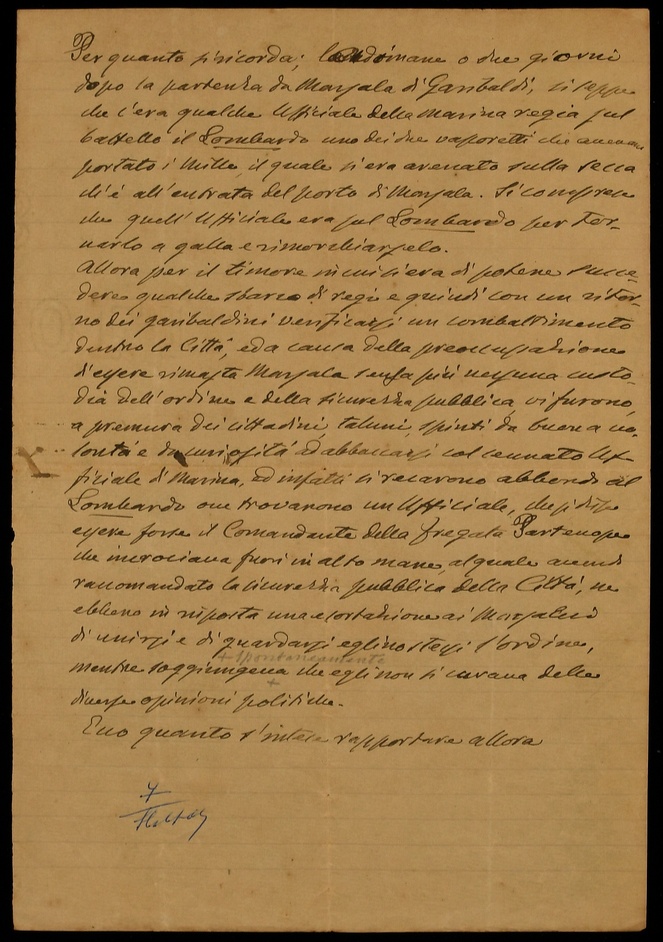 Per quanto si ricorda; l'indomane o due giorni
dopo la partenza da Marsala di Garibaldi, si seppe
che c'era qualche Ufficiale della Marina regia sul
battello il Lombardo uno dei due vaporetti che avevano
portato i Mille, il quale si era arenato sulla secca
ch'è all'entrata del porto di Marsala. Si comprese
che quell'Ufficiale era sul Lombardo per tor-
narlo a galla e rimorchiarselo.
Allora per il timore in cui si era di potere succe-
dere qualche sbarco di regi e quindi con un ritor-
no dei garibaldini verificarsi un combattimento
dentro la Città, ed a causa della preoccupazione
d'essere rimasta Marsala senza più nessuna custo-
dia dell'ordine e della sicurezza pubblica, vi furono,
a premura dei cittadini, taluni, spinti da buona vo-
lontà e da curiosità ad abboccarsi col cennato Uf-
ficiale di Marina, ed infatti si recarono a bordo al
Lombardo ove trovarono un Ufficiale, che si disse
essere forse il Comandante della fregata Partenope
che incrociava fuori in alto mare, al quale avendo
raccomandato la sicurezza pubblica della Città, ne
ebbero in risposta una esortazione ai Marsalesi
di unirsi e di guardarsi eglino stessi l'ordine,
+ spontaneamente
mentre soggiungeva che egli non si curava delle
+
diverse opinioni politiche.
Ecco quanto s'intese rapportare allora
7